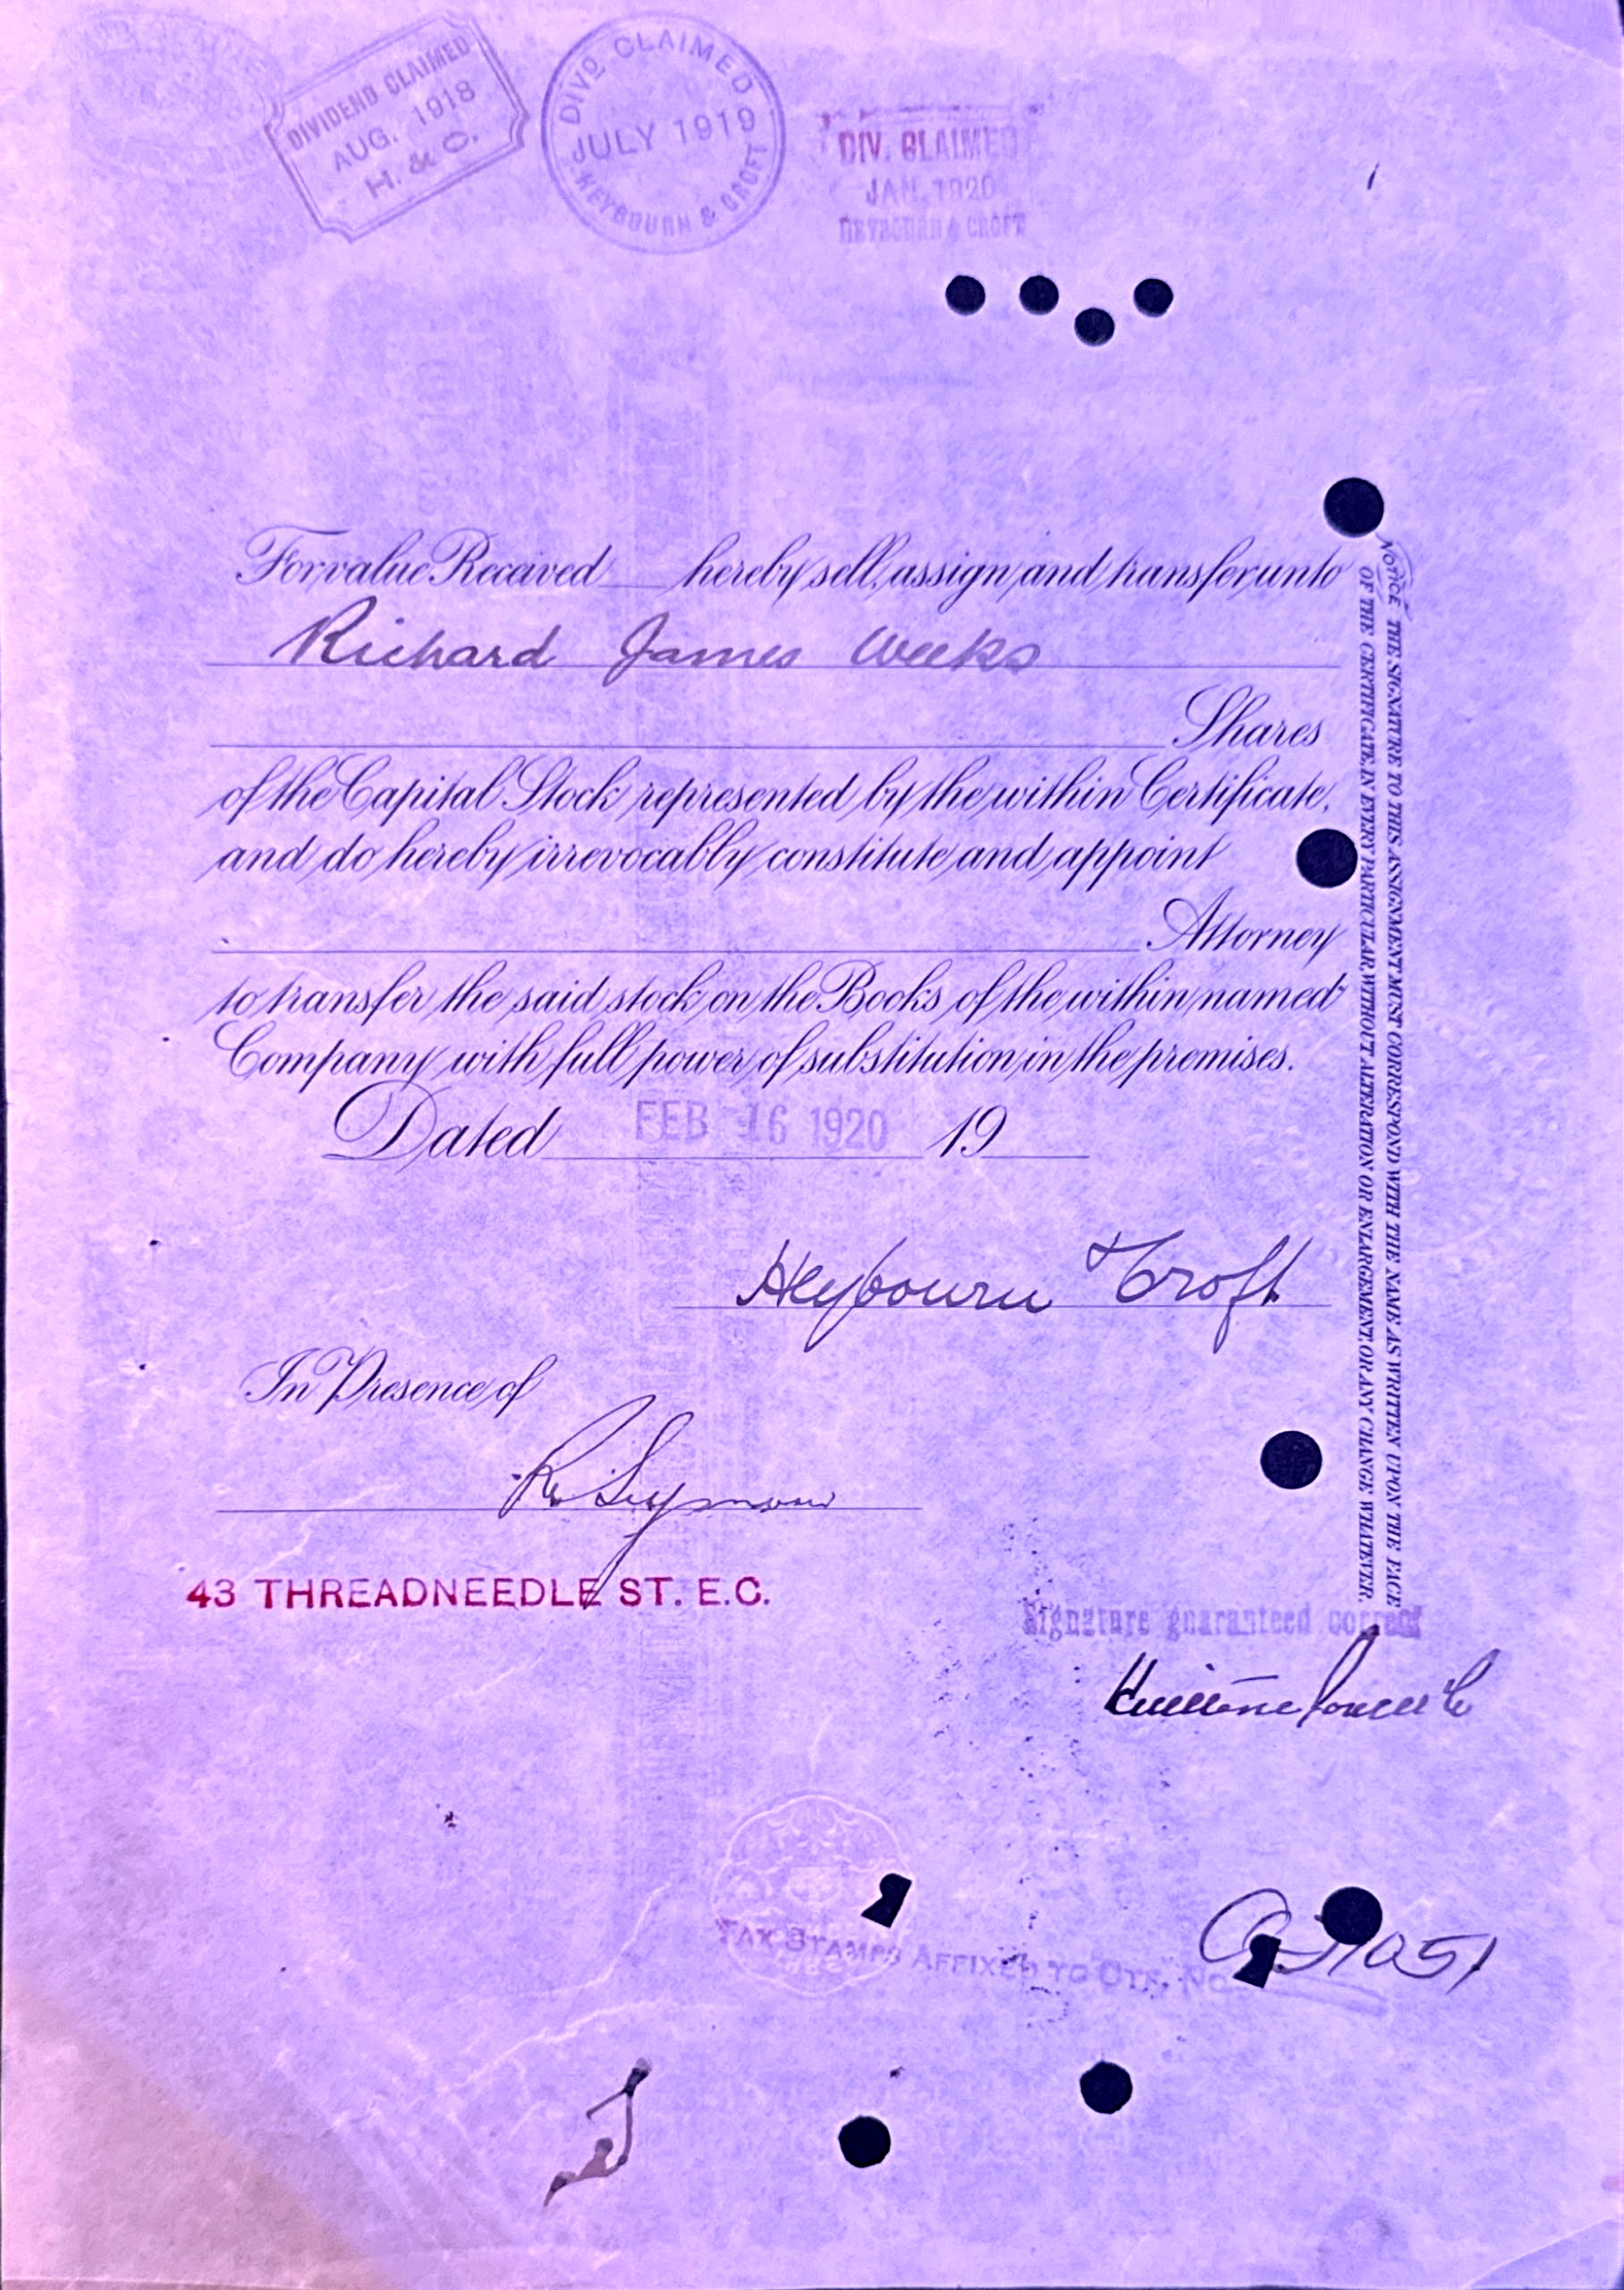 DIVIDEND CLAIMED
AUG. 1918
H. & C.
DIVD CLAIMED
JULY 1919
HEYBOURN & CROFT
DIV. CLAIMED
JAN. 1920
HEYBOURN & CROFT
For value Received hereby sell, assign and transfer unto
Richard James Weeks
Shares
of the Capital Stock represented by the within Certificate,
and do hereby irrevocably constitute and appoint
Attorney
to transfer the said stock on the Books of the within named
Company with full power of substitution in the premises.
Dated FEB 16 1920 19
Heybourn & Croft
In Presence of
R. Seymour
43 THREADNEEDLE ST. E.C.
NOTICE THE SIGNATURE TO THIS ASSIGNMENT MUST CORRESPOND WITH THE NAME AS WRITTEN UPON THE FACE
OF THE CERTIFICATE, IN EVERY PARTICULAR WITHOUT ALTERATION OR ENLARGEMENT, OR ANY CHANGE WHATEVER.
Signature guaranteed correct
TAX STAMPS AFFIXED TO CTF. NO.